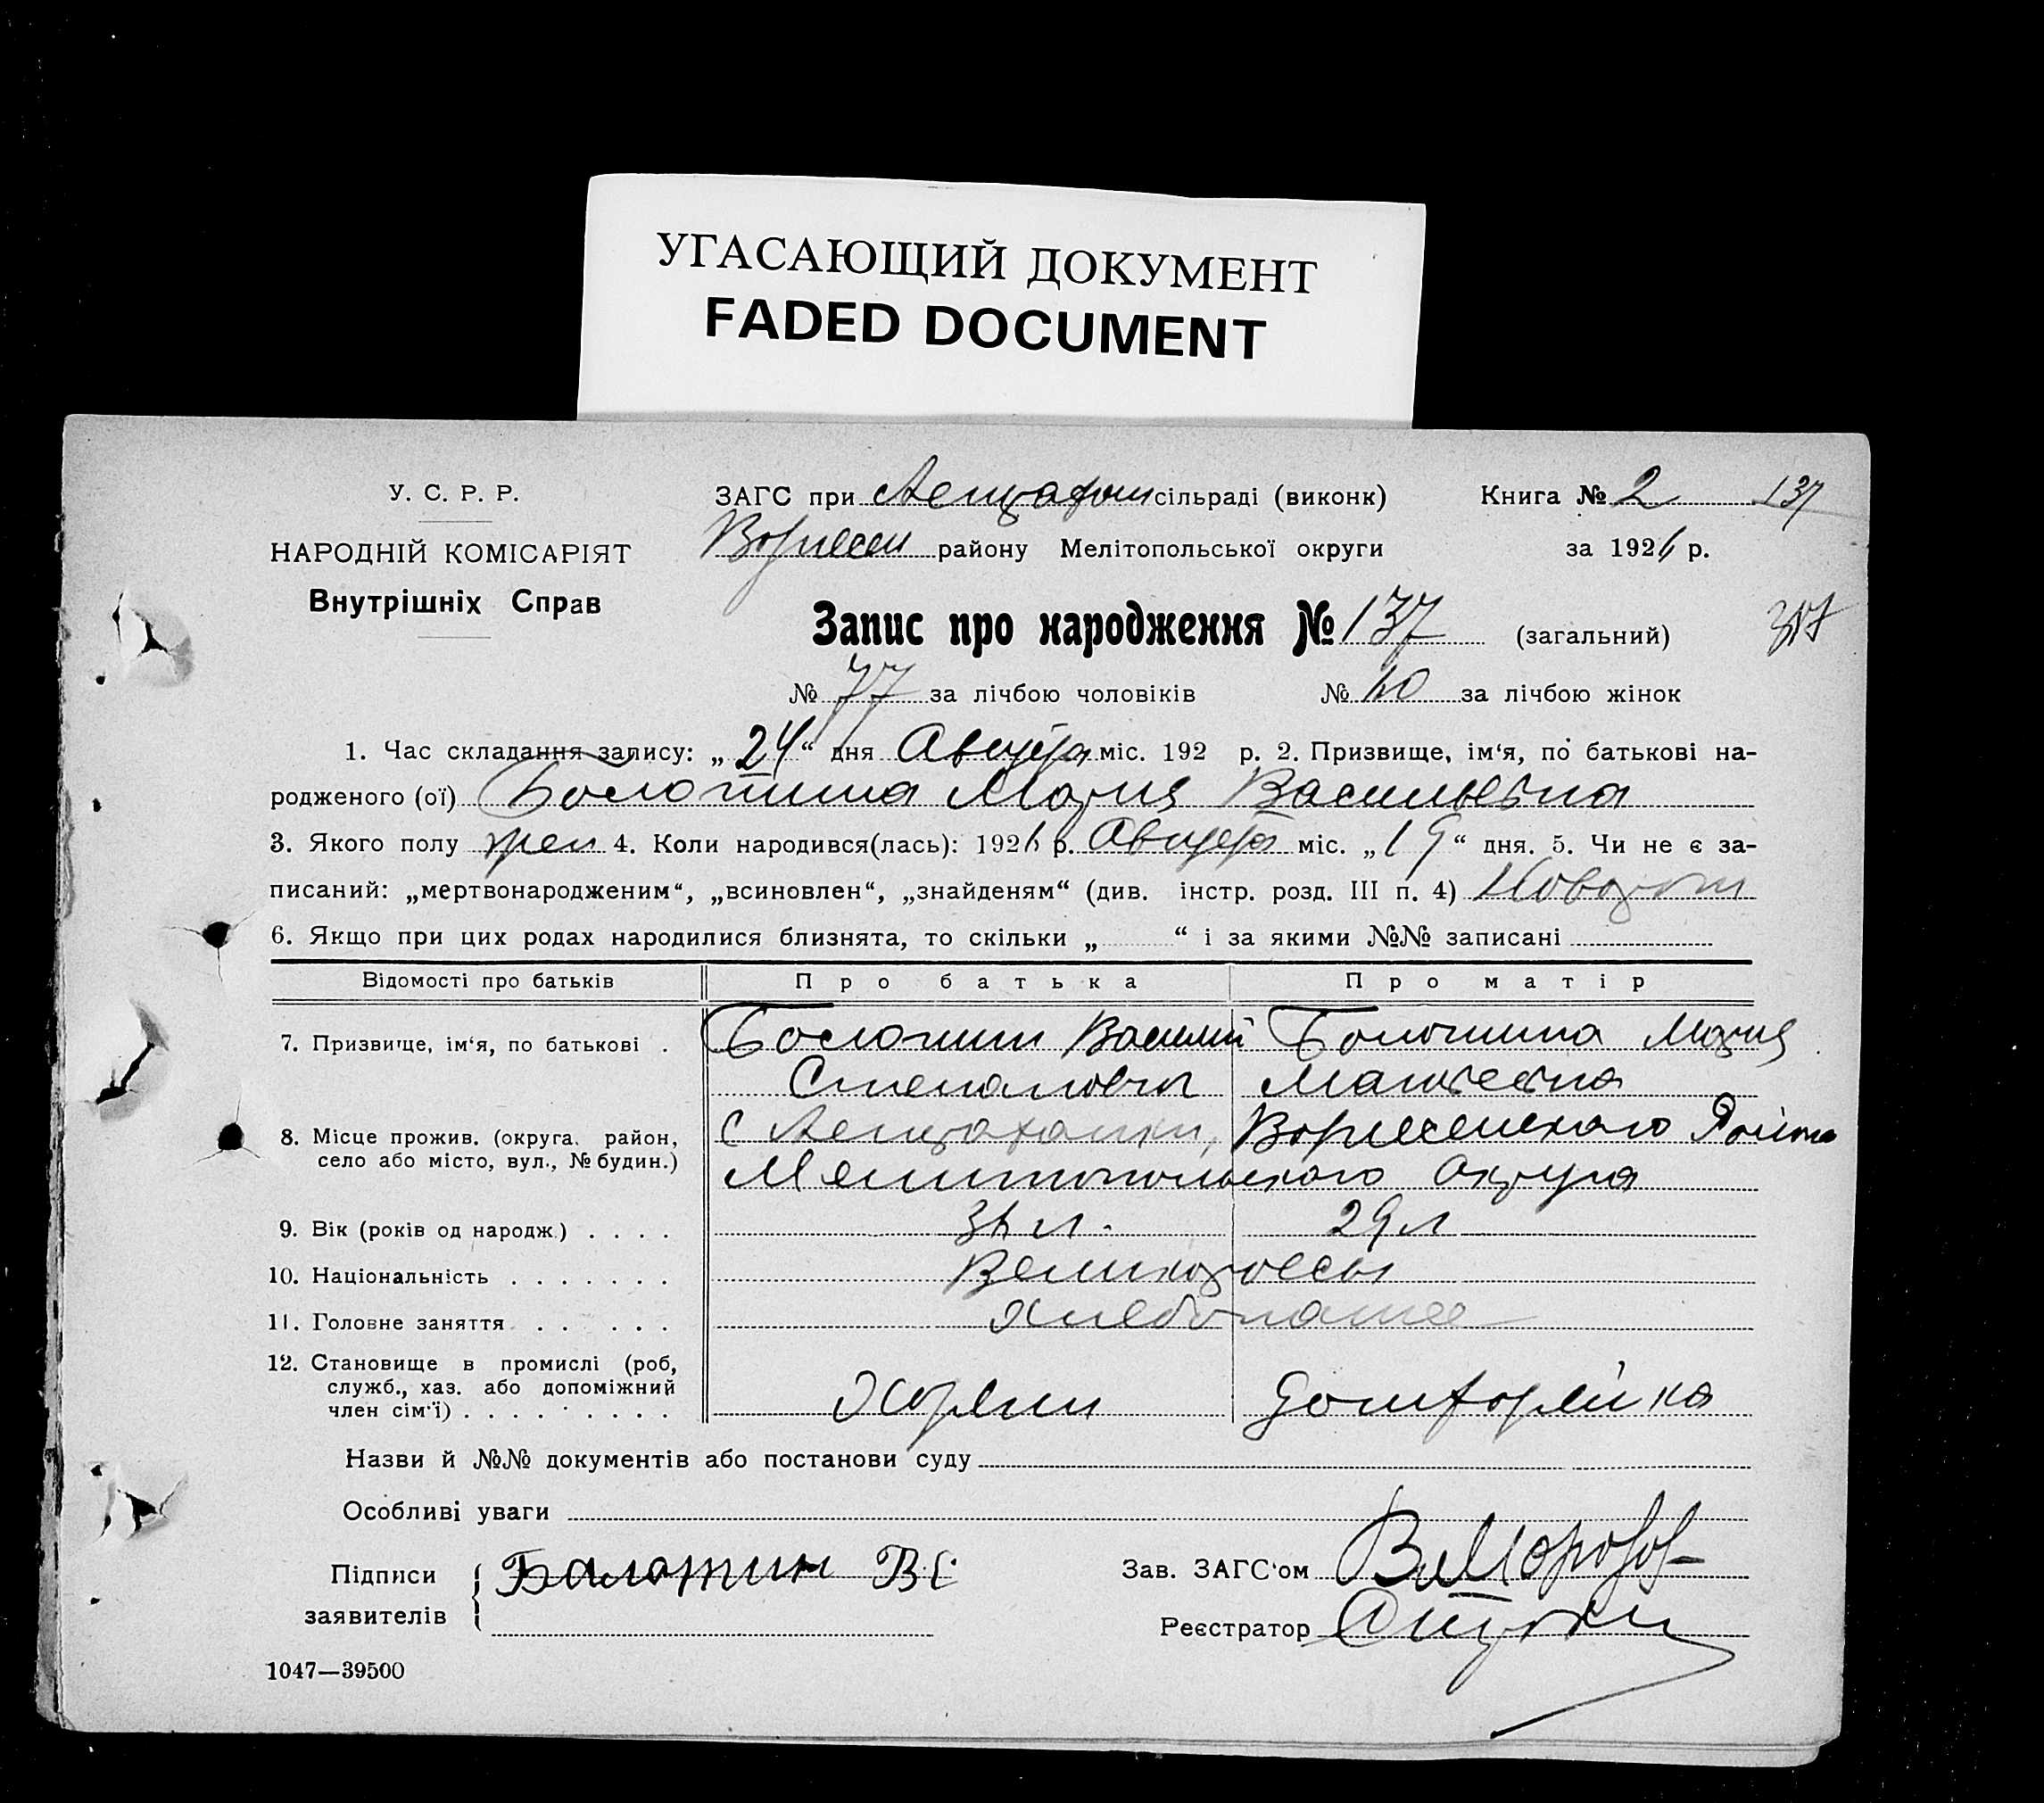 УГАСАЮЩИЙ ДОКУМЕНТ
FADED DOCUMENT
У. С. Р. Р.
НАРОДНІЙ КОМІСАРІЯТ
Внутрішніх Справ
ЗАГС при Астрахан сільраді (виконк) Книга № 2 137
району Мелітопольської округи за 1926 р.
Запис про народження № 137 (загальний)
№ 77 за лічбою чоловіків № 60 за лічбою жінок
1. Час складання запису: „24“ дня Августа міс. 192 р. 2. Призвище, ім‘я, по батькові на-
родженого (ої) Болотина Мария Васильевна
3. Якого полу жен 4. Коли народився(лась): 1926 р. Августа міс. „19“ дня. 5. Чи не є за-
писаний: „мертвонародженим“, „всиновлен“, „знайденям“ (див. інстр. розд. III п. 4)
6. Якщо при цих родах народилися близнята, то скільки „ “ і за якими №№ записані
Відомості про батьків Про батька Про матір
7. Призвище, ім‘я, по батькові . Болотин Василий Болотина Мария
Степанович Матвеевна
8. Місце прожив. (округа, район, с Астраханки, Района
село або місто, вул., № будин.) Мелитопольского Округа
9. Вік (років од народж.) . . . . 36 л. 29 л
10. Національність . . . . . . . Великороссы
11. Головне заняття . . . . . . Хлебопашес
12. Становище в промислі (роб,
служб., хаз. або допоміжний
член сім‘ї) . . . . . . . . . Хозяин домохозяйка
Назви й №№ документів або постанови суду
Особливі уваги
Підписи Балотин ВС Зав. ЗАГС‘ом В Морозов
заявителів Реєстратор
1047—39500